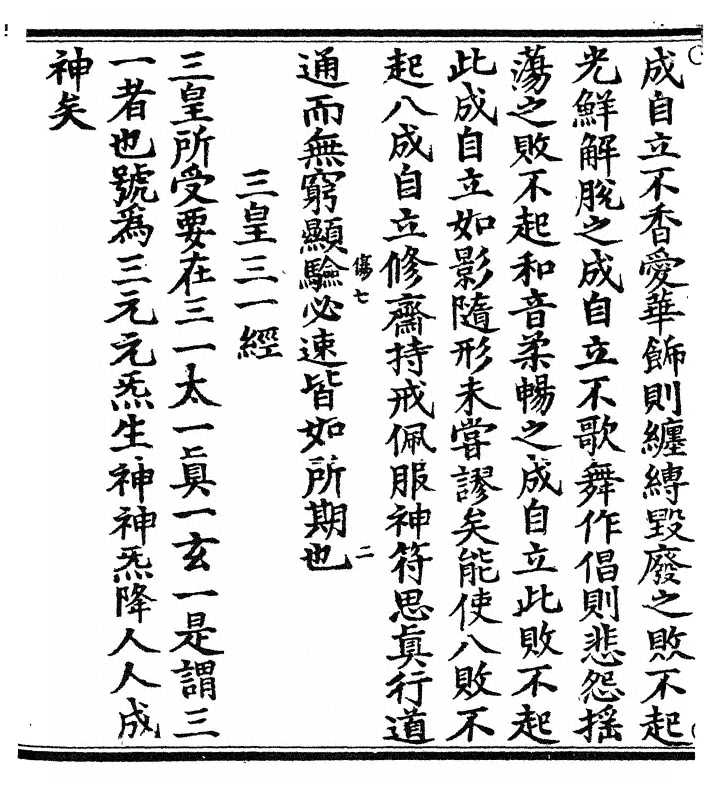 成自立不香愛華飾則纏縛毀廢之敗不起
光鮮解脫之成自立不歌舞作倡則悲怨揺
蕩之敗不起和音柔暢之成自立此敗不起
此成自立如影隨形未嘗謬矣能使八敗不
起八成自立修齋持戒佩服神符思眞行道
傷七
二
通而無窮顯驗必速皆如所期也
三皇三一經
三皇所受要在三一太一眞一玄一是謂三
一者也號爲三元元炁生神神炁降人人成
神矣